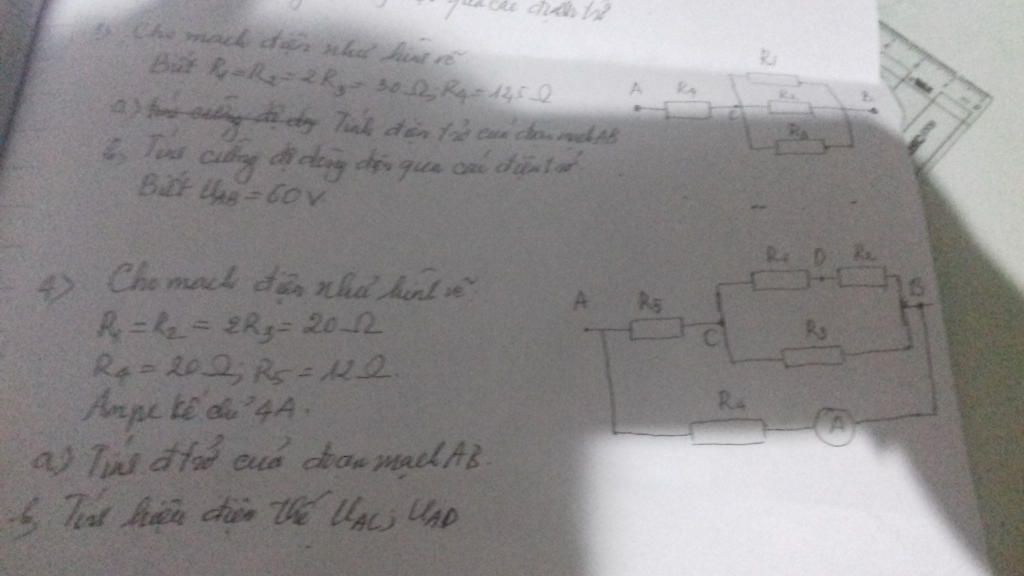 qua các điện trở
Cho mạch điện như hình vẽ
Biết R₁ = R₂ = 2R₃ = 30Ω; R₄ = 12,5Ω
a) Tính điện trở của đoạn mạch AB
b, Tính cường độ dòng điện qua các điện trở
Biết UAB = 60V
A R₄ C R₁ R₂ R₃ B
4) Cho mạch điện như hình vẽ
R₁ = R₂ = 2R₃ = 20Ω
R₄ = 20Ω; R₅ = 12Ω.
Ampe kế chỉ 4A.
a) Tính đ trở của đoạn mạch AB.
b, Tính hiệu điện thế UAC; UAD
A R₅ C R₁ D R₂ B
R₃
R₄ A